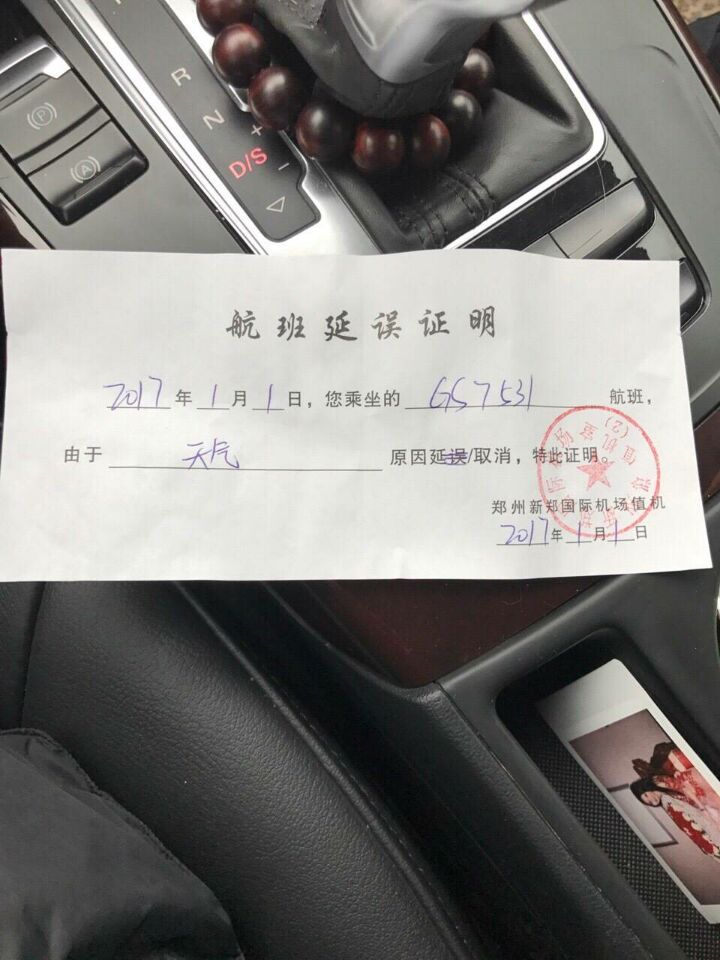 R
N
+
D/S
−
P
A
航班延误证明
2017年1月1日，您乘坐的 GS7531 航班，
由于 天气 原因延误/取消，特此证明。
郑州新郑国际机场值机
2017年1月1日
值机室
(2)